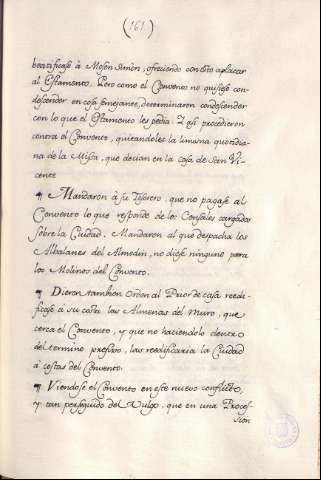 (161)
beatificase à Mosen Simòn, ofreciendo con esto aplacar
al Estamento. Pero como el Convento no quisiese con-
descender en cosa semejante, determinaron condescender
con lo que el Estamento les pedia. I assi procedieron
contra el Convento, quitandoles la limosna quotidia-
na de la Missa, que decian en la Casa de San Vi-
cente
¶ Mandaron à su Tesorero, que no pagase al
Convento lo que responde de los Censales cargados
sobre la Ciudad. Mandaron al que despacha los
Albalanes del Almodin, no diese ninguno para
los Molinos del Convento.
¶ Dieron tambien orden al Prior de casa reedi-
ficase à su costa las Almenas del Muro, que
cerca el Convento, y que no haciendolo dentro
del termino preciso, las reedificaria la Ciudad
à costas del Convento.
¶ Viendose el Convento en este nuevo conflicto,
y tan perseguido del Vulgo, que en una Proces-
sion